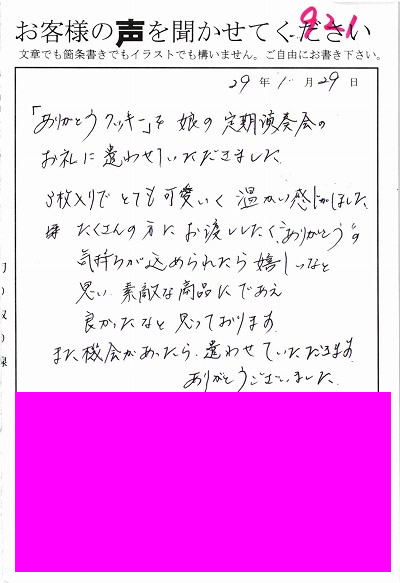 921
お客様の声を聞かせてください
文章でも箇条書きでもイラストでも構いません。ご自由にお書き下さい。
29年1月29日
「ありがとうクッキー」を娘の定期演奏会の
お礼に遣わせていただきました
3枚入りでとても可愛いく温かい感じがしました。
たくさんの方にお渡ししたく"ありがとう"の
気持ちが込められたら嬉しいなと
思い、素敵な商品にであえ
良かったなと思っております
また機会があったら、遣わせていただきます
ありがとうございました